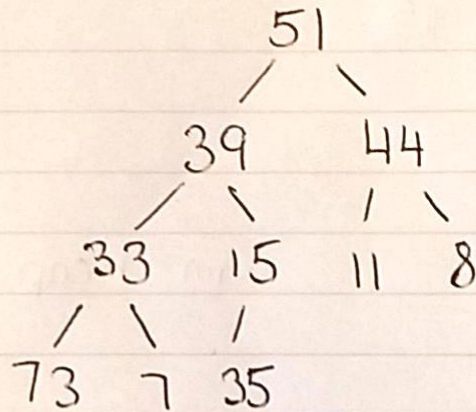 51
39 44
33 15 11 8
73 7 35